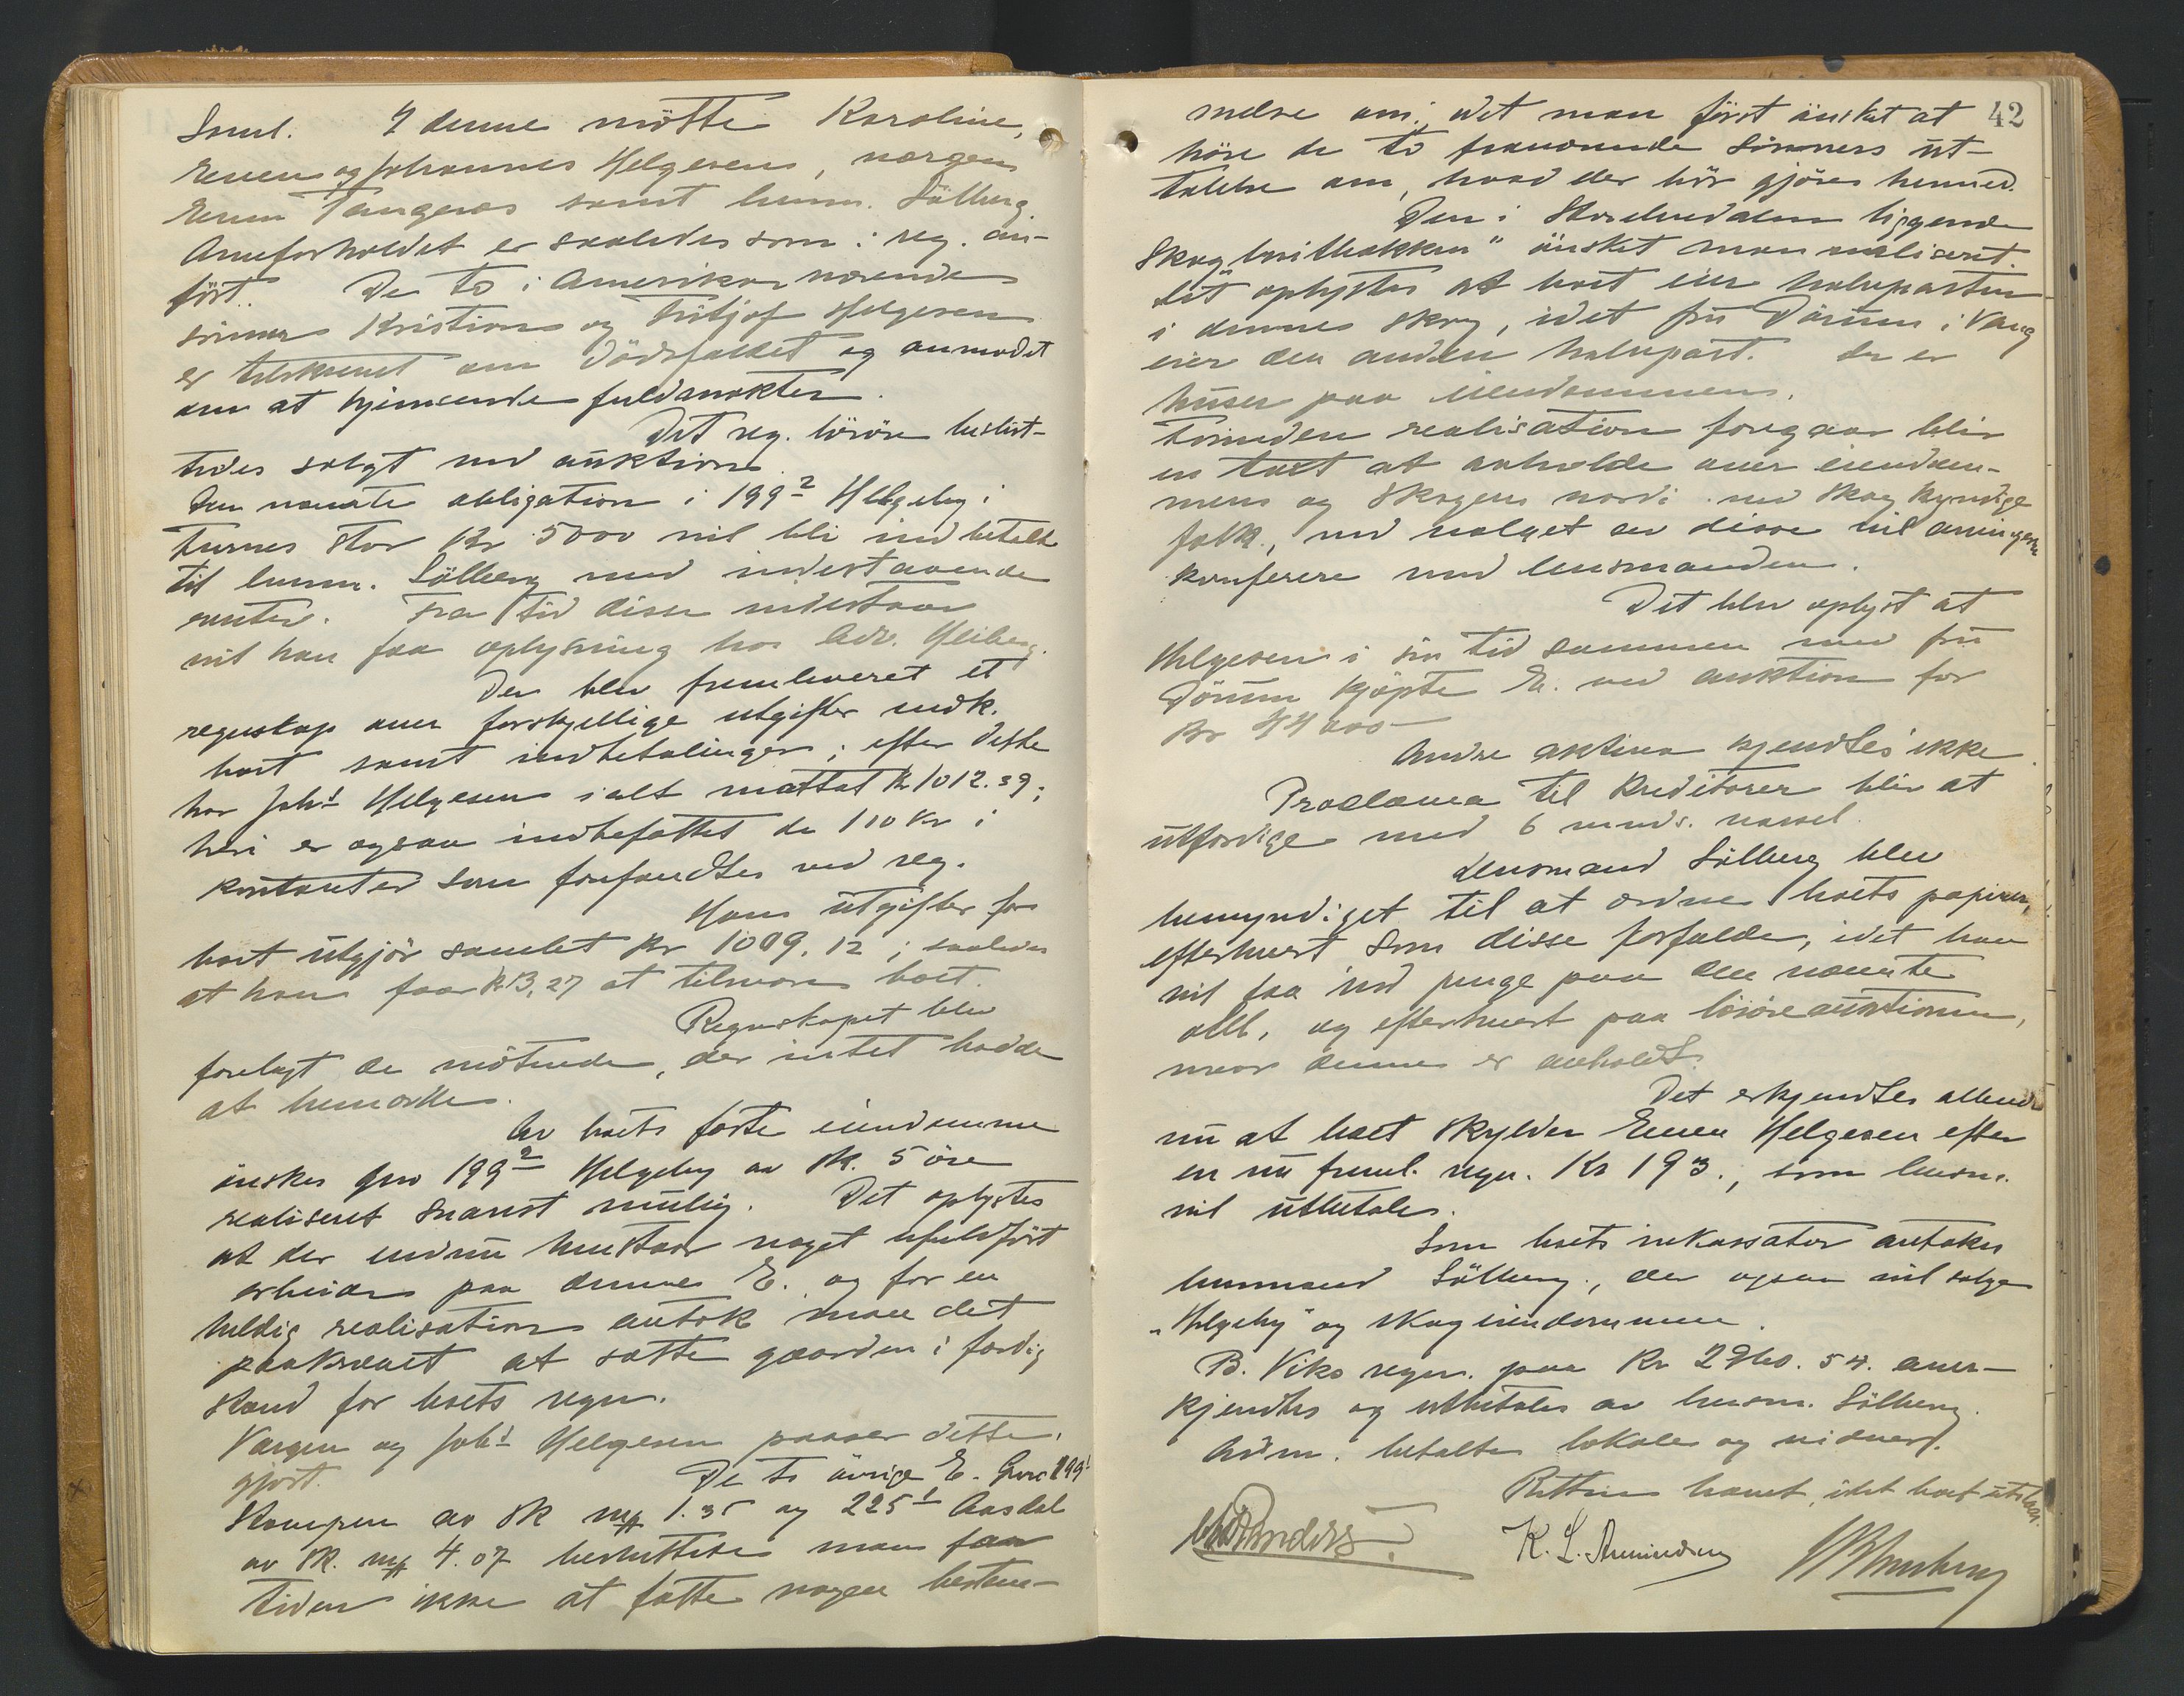 Saml. I denne mötte Karoline,
Emma og Johannes Helgesen, værgen
Einar Tangeraas samt lensm. Sölberg.
Arveforholdet er saaledes som i reg. an-
fört. De to i Amerika værende
sönner Kristian og Fritjof Helgesen
er tilskrevet om dödsfaldet og anmodet
om at hjemsende fuldmakter.
Det reg. lösöre beslut-
tedes solgt ved auktion.
Den nævnte obligation i 199² Helgeby i
Furnes stor Kr 5000 vil bli indbetalt
til lensm. Sölberg med indestaaende
renter. Fra tid disse indestaar
vil han faa oplysning hos Adv. Heiberg.
Der blev fremleveret et
regnskap over forskjellige utgifter vedk.
boet samt indbetalinger; efter dette
har Johs Helgesen ialt mottat Kr 1012.39;
heri er ogsaa indbefattet de 110 Kr i
kontanter som forefandtes ved reg.
Hans utgifter for
boet utgjör samlet Kr 1009.12; saaledes
at han faar Kr 3,27 at tilsvare boet.
Regnskapet blev
forelagt de mötende, der intet hadde
at bemerke.
Av boets faste eiendomme
önskes gno 199² Helgeby av sk. 5 öre
realiseret snarest mulig. Det oplystes
at der endnu henstaar noget ufuldfört
arbeide paa denne E. og for en
heldig realisation antok man det
paakrævet at sætte gaarden i færdig
stand for boets regn.
Værgen og Johs Helgesen paaser dette
gjort. De to övrige E. Gno 199¹
Kampen av sk mk 1.35 og 225¹ Aasdal
av sk. mk 4.07 besluttedes man for
tiden ikke at fatte nogen bestem-
42
melse om, idet man först önsket at
höre de to fraværende sönners ut-
talelse om, hvad der bör gjöres hermed.
Den i Storelvedalen liggende
Skog önsket man realiseret.
Det oplystes at boet eier halvparten
i denne skog, idet fru Dörum i Vang
eier den anden halvpart. Der er
huser paa eiendommen.
Forinden realisation foregaar blir
en takst at avholde over eiendom-
mens og skogens værdi ved skogkyndige
folk, ved valget av disse vil arvingerne
konferere med lensmanden.
Det blev oplyst at
Helgesen i sin tid sammen med fru
Dörum kjöpte E. ved auktion for
Kr 44000
Andre aktiva kjendtes ikke.
Proclama til kreditorer blir at
utfærdige med 6 mnds. varsel.
Lensmand Sölberg blev
bemyndiget til at ordne boets papirer,
efterhvert som disse forfalder, idet han
vil faa ind penge paa den nævnte
obl. og efterhvert paa lösöreauktionen,
naar denne er avholdt.
Det erkjendtes allerede
nu at boet skylder Emma Helgesen efter
en nu freml. regn. Kr 193., som lensm.
vil utbetale.
Som boets inkassator antokes
lensmand Sölberg, der ogsaa vil sælge
"Helgeby" og skogeiendommen.
B. Viks regn. paa Kr 2960.54. aner-
kjendtes og utbetales av lensm. Sölberg.
Adm. betalte lokale og vidner.
Retten hævet, idet boet utstaar.
K. L. Amundsen